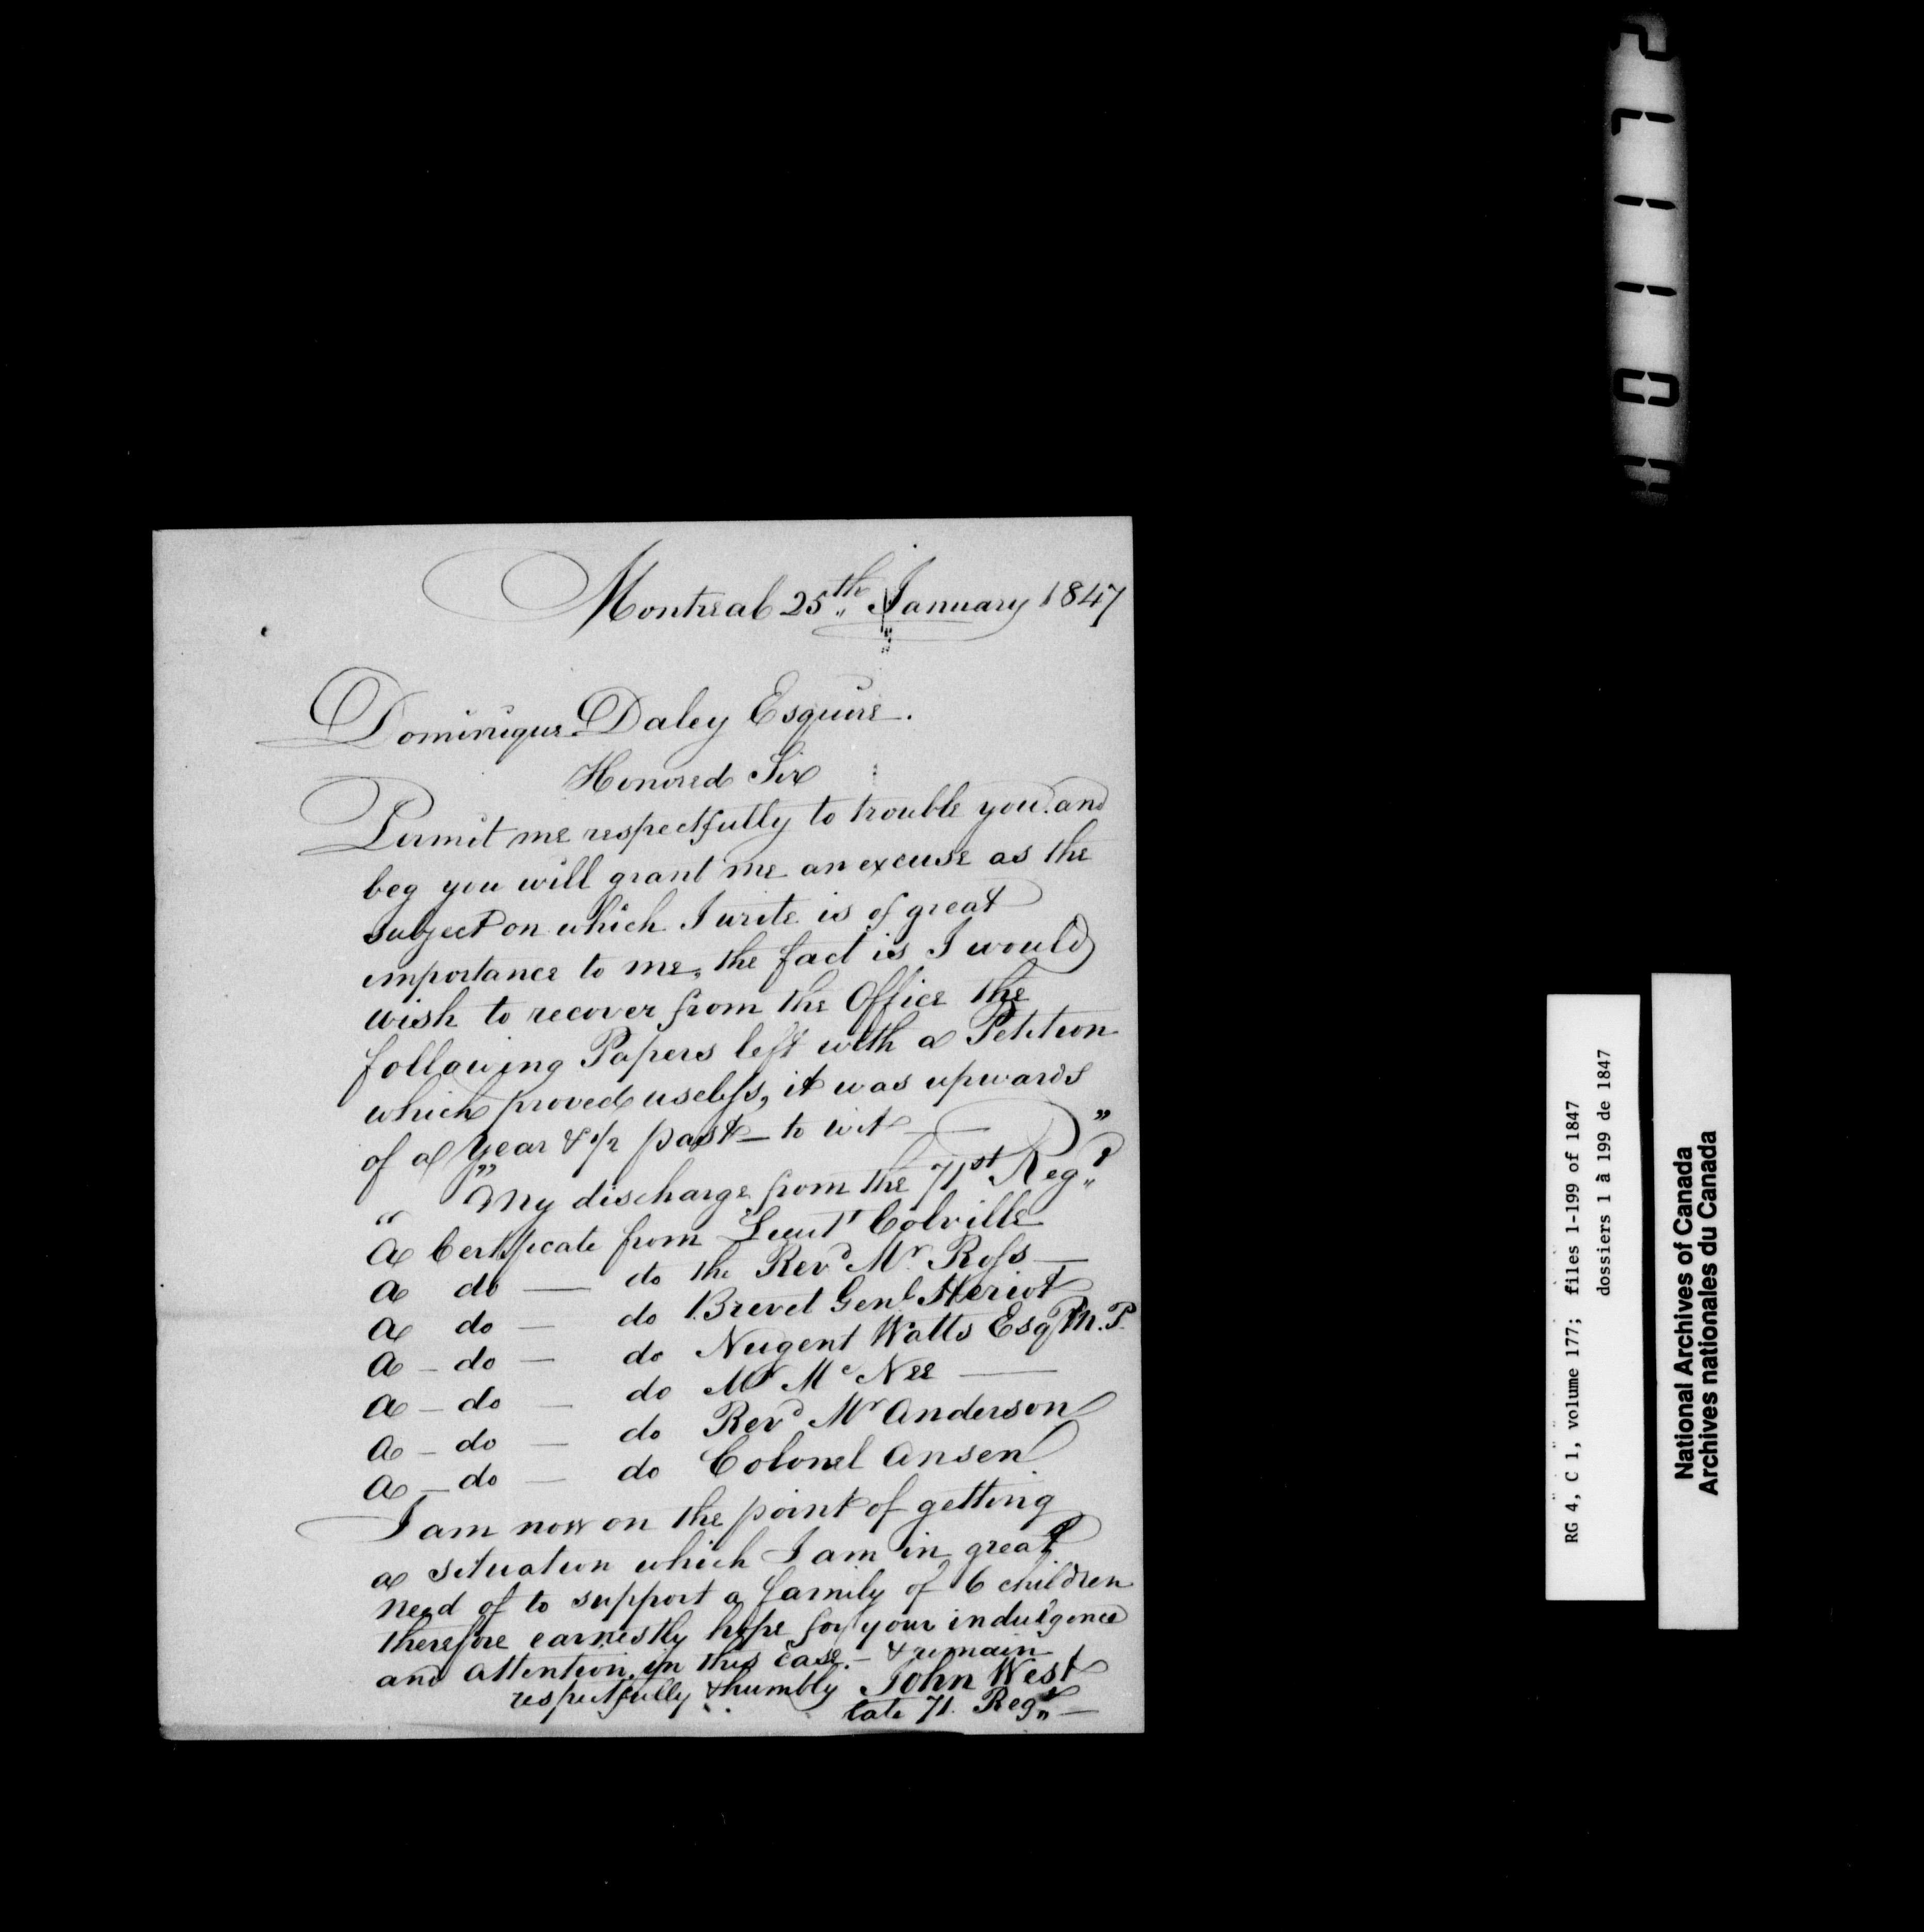 Montreal 25th January 1847
Dominique Daley Esquire.
Honored Sir
Permit me respectfully to trouble you and
beg you will grant me an excuse as the
subject on which I write is of great
importance to me, the fact is I would
wish to recover from the Office the
following Papers left with a Petition
which proved useless, it was upwards
of a year & 1/2 past — to wit —
" My discharge from the 71st Regt "
" A Certificate from Lieut Colville
A do — do the Revd Mr Ross —
A do — do Brevet Genl Heriot
A — do — do Nugent Watts Esqr M.P.
A — do — do Mr McNee —
A — do — do Revd Mr Anderson
A — do — do Colonel Ansen
I am now on the point of getting
a situation which I am in great
need of to support a family of 6 children
therefore earnestly hope for your indulgence
and attention in this case. — & remain
respectfully & humbly John West
late 71. Regt —
RG 4, C 1, volume 177; files 1-199 of 1847
dossiers 1 à 199 de 1847
National Archives of Canada
Archives nationales du Canada